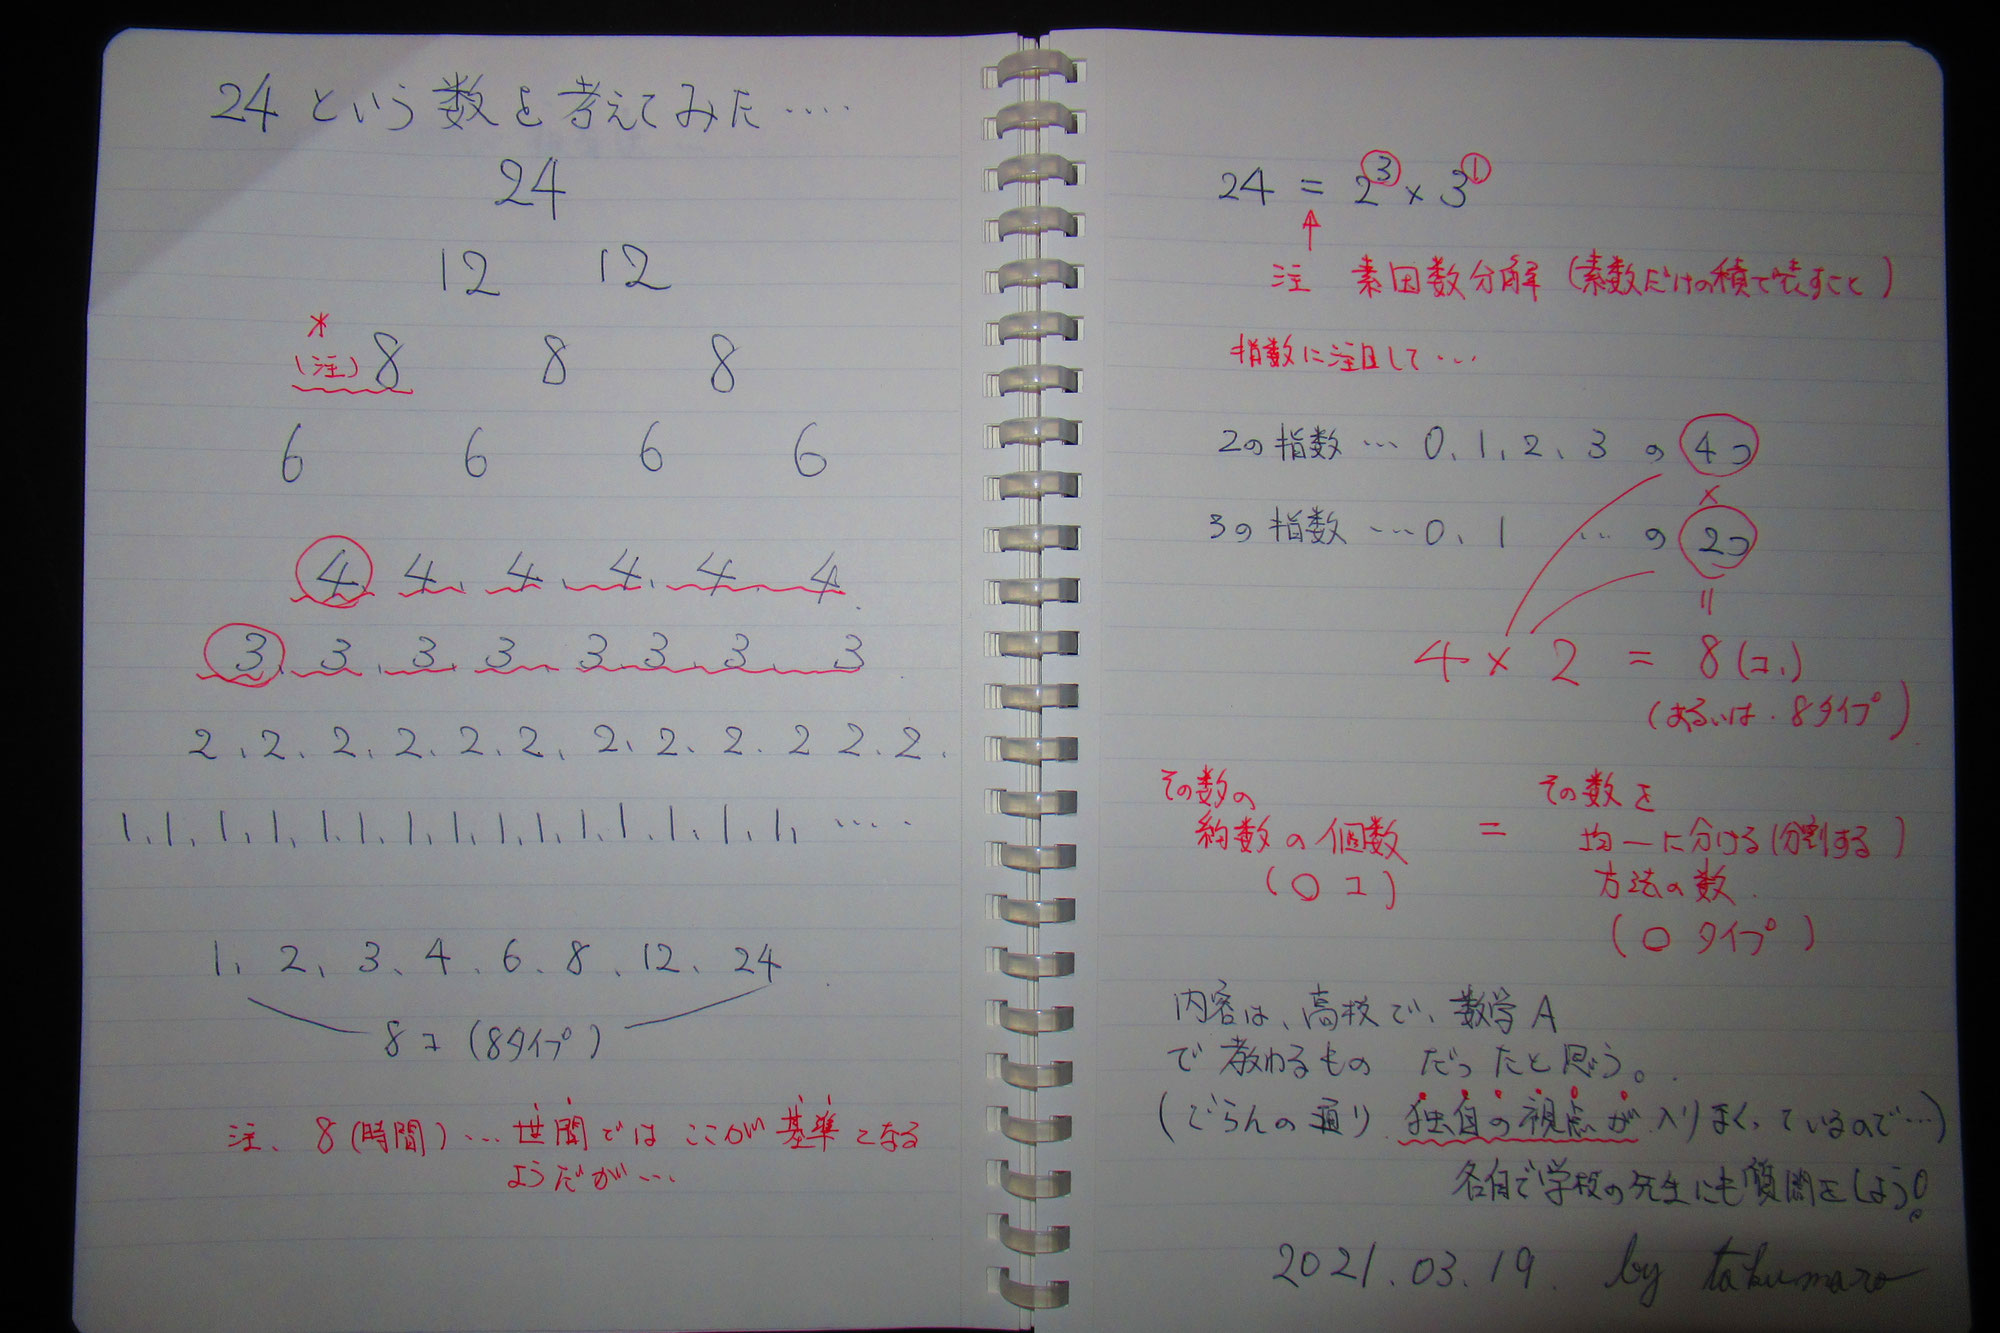 24という数を考えてみた‥‥‥
24
12 12
*
(注) 8 8 8
6 6 6 6
4. 4. 4. 4. 4. 4.
3. 3. 3. 3. 3. 3. 3. 3
2. 2. 2. 2. 2. 2. 2. 2. 2. 2 2. 2.
1. 1. 1. 1. 1. 1. 1. 1. 1. 1. 1. 1. 1. 1. 1. 1. ‥‥‥
1. 2. 3. 4. 6. 8. 12. 24
8コ (8タイプ)
注. 8(時間)…世間ではここが基準となる
ようだが…
24 = 2³ × 3¹
↑
注 素因数分解 (素数だけの積で表すこと)
指数に注目して…
2の指数 … 0. 1. 2. 3 の 4つ
×
3の指数 … 0. 1 … の 2つ
=
4 × 2 = 8 (コ.)
(あるいは. 8タイプ)
その数の
約数の個数
(○コ)
=
その数を
均一に分ける(分割する)
方法の数.
(○タイプ)
内容は、高校で、数学A
で教わるもの だったと思う。
(ごらんの通り 独自の視点が入りまくっているので…)
各自で学校の先生にも質問をしよう!
2021.03.19. by takumaro